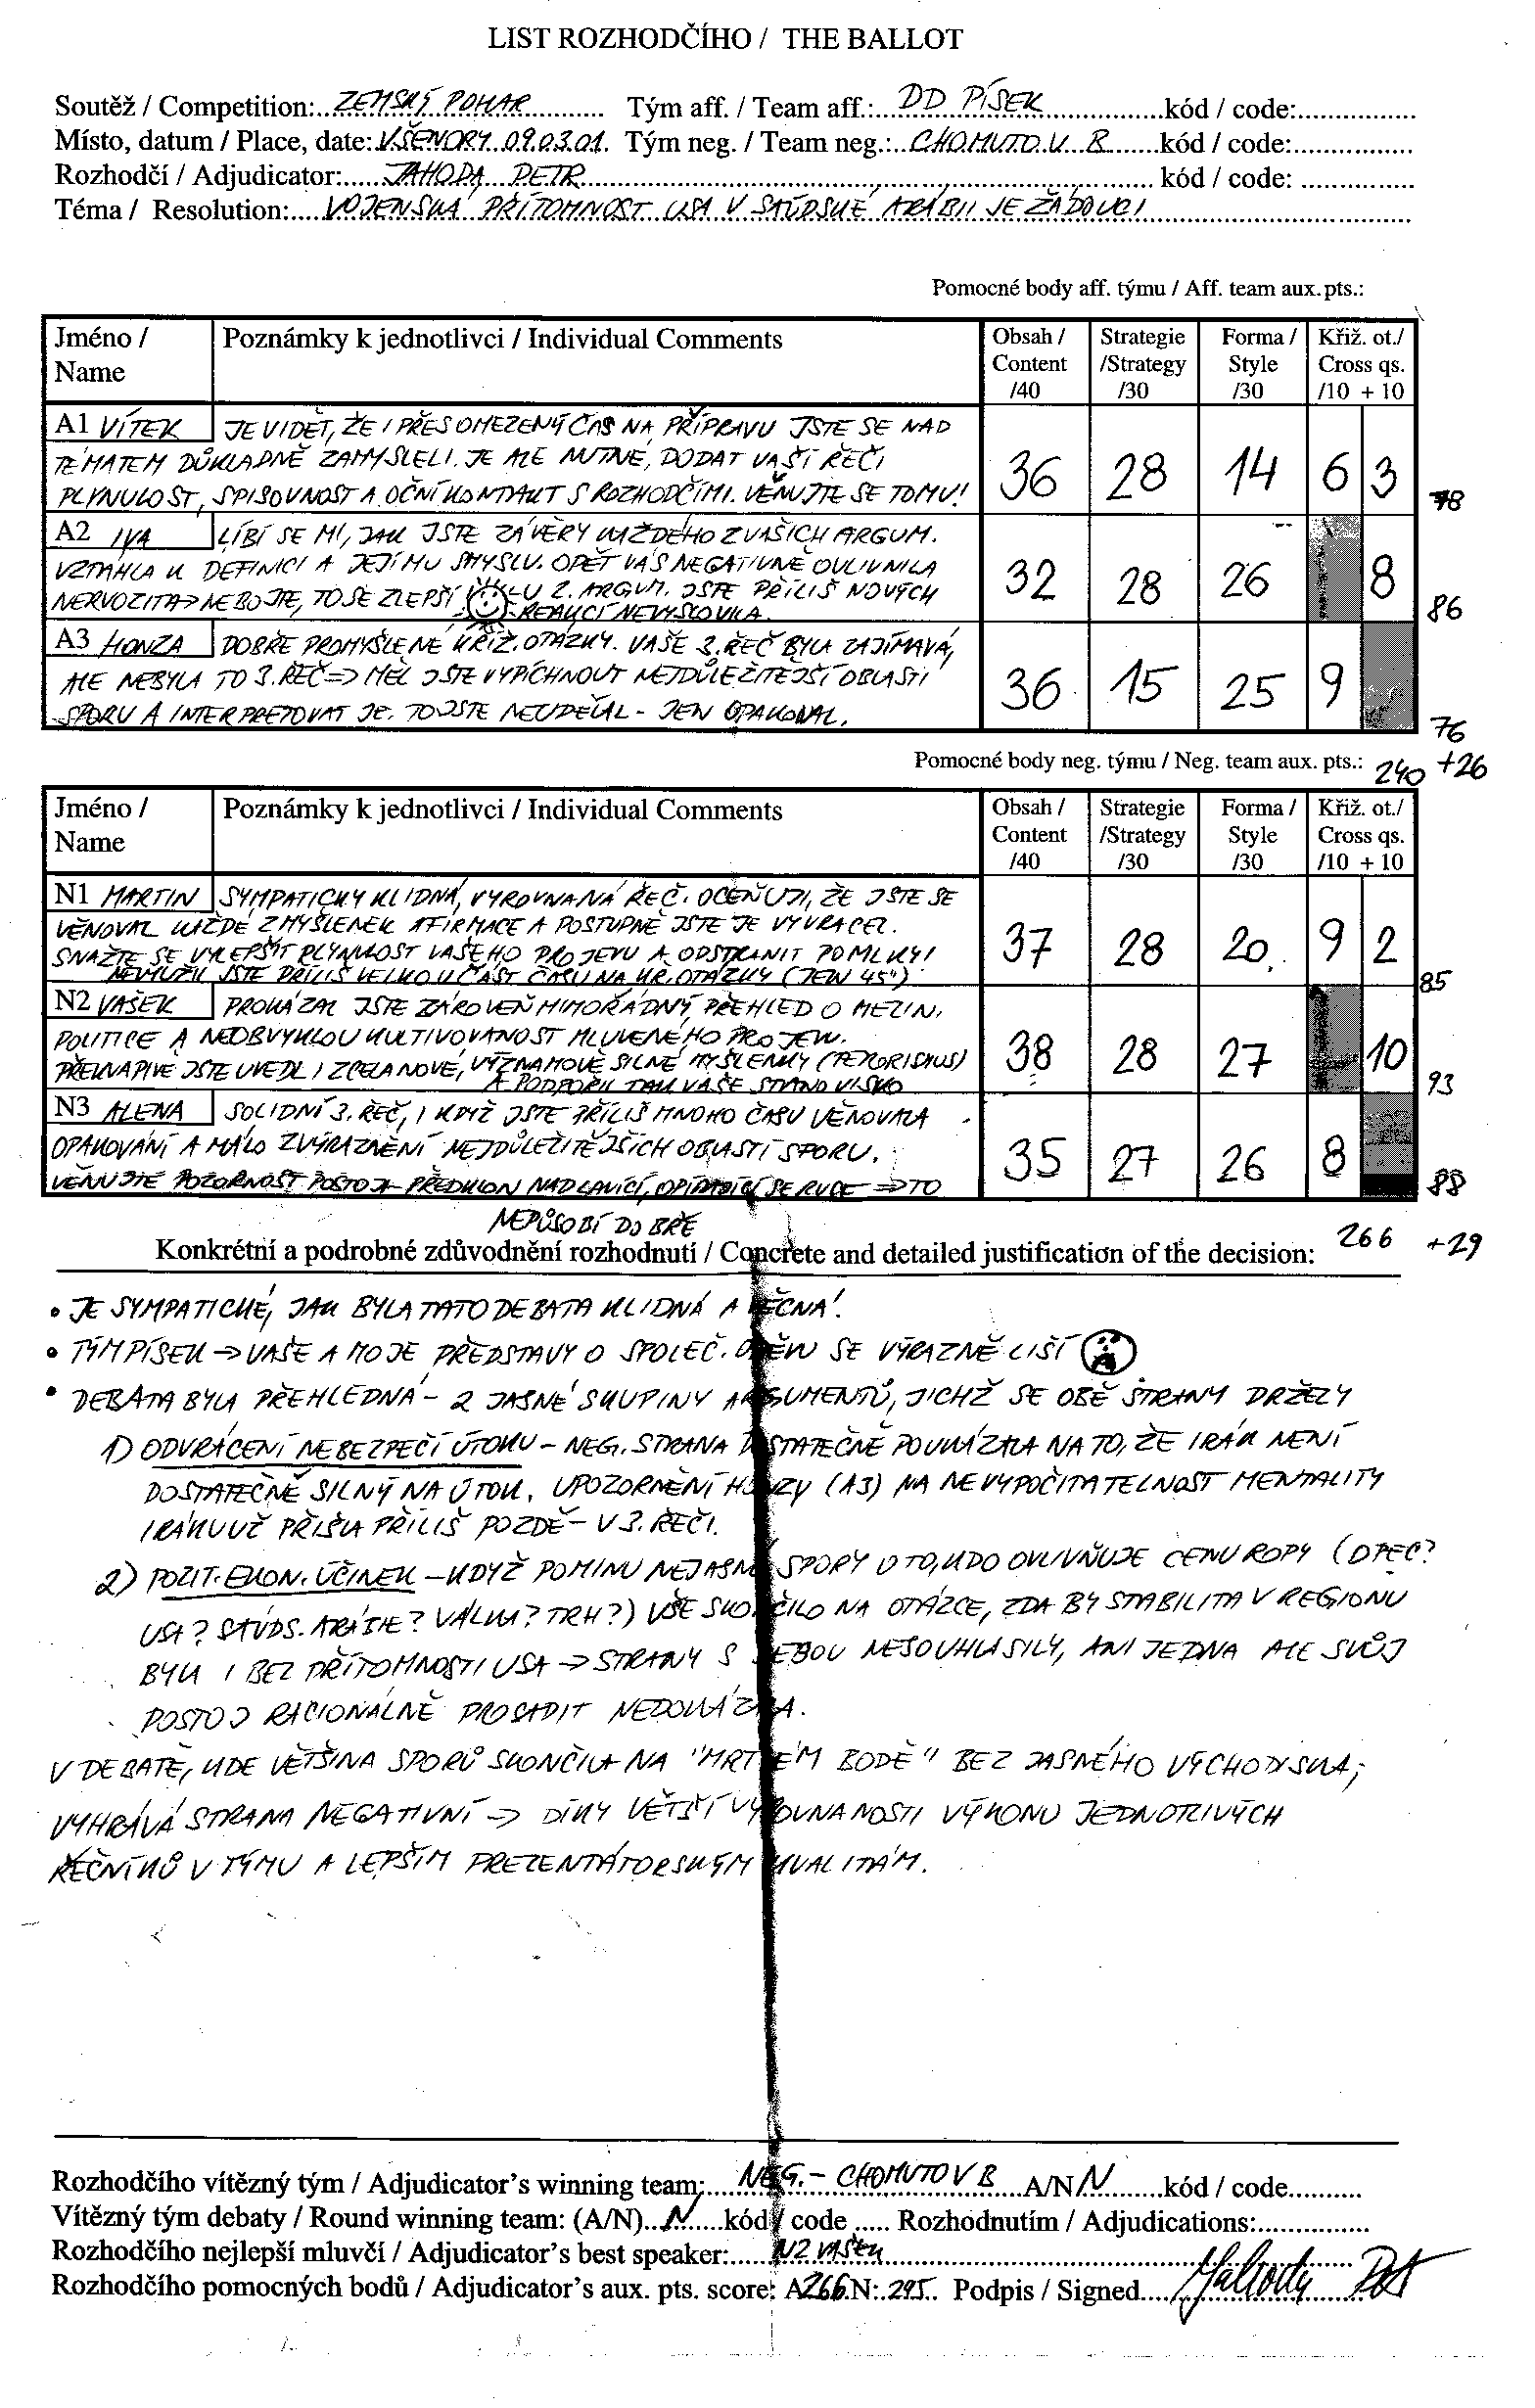 LIST ROZHODČÍHO / THE BALLOT
Soutěž / Competition: ZEMSKÝ POHAR Tým aff. / Team aff.: DD PÍSEK kód / code:
Místo, datum / Place, date: VŠENORY 09.03.01. Tým neg. / Team neg.: CHOMUTOV B kód / code:
Rozhodčí / Adjudicator: JAHODA PETR kód / code:
Téma / Resolution: VOJENSKÁ PŘÍTOMNOST USA V SAÚDSKÉ ARÁBII JE ŽÁDOUCÍ
Pomocné body aff. týmu / Aff. team aux.pts.:
Jméno / Name Poznámky k jednotlivci / Individual Comments Obsah / Content /40 Strategie /Strategy /30 Forma / Style /30 Křiž. ot./ Cross qs. /10 + 10
A1 VÍTEK JE VIDĚT, ŽE I PŘES OMEZENÝ ČAS NA PŘÍPRAVU JSTE SE NAD
TÉMATEM DŮKLADNĚ ZAMYSLELI. JE ALE NUTNÉ, DODAT VAŠÍ ŘEČI
PLYNULOST, SPISOVNOST A OČNÍ KONTAKT S ROZHODČÍMI. VĚNUJTE SE TOMU! 36 28 14 6 3 78
A2 IVA LÍBÍ SE MI, JAK JSTE ZÁVĚRY KAŽDÉHO Z VAŠICH ARGUM.
VZTÁHLA K DEFINICI A JEJÍMU SMYSLU. OPĚT VÁS NEGATIVNĚ OVLIVNILA
NERVOZITA => NEBOJTE, TO SE ZLEPŠÍ K 2. ARGUM. JSTE PŘÍLIŠ NOVÝCH
REAKCÍ NEVYSLOVILA. 32 28 26 8 86
A3 HONZA DOBŘE PROMYŠLENÉ KŘÍŽ. OTÁZKY. VAŠE 3. ŘEČ BYLA ZAJÍMAVÁ,
ALE NEBYLA TO 3. ŘEČ => MĚL JSTE VYPÍCHNOUT NEJDŮLEŽITĚJŠÍ OBLASTI
SPORU A INTERPRETOVAT JE. TO JSTE NEUDĚLAL - JEN OPAKOVAL. 36 15 25 9 76
Pomocné body neg. týmu / Neg. team aux. pts.: 240 +26
Jméno / Name Poznámky k jednotlivci / Individual Comments Obsah / Content /40 Strategie /Strategy /30 Forma / Style /30 Křiž. ot./ Cross qs. /10 + 10
N1 MARTIN SYMPATICKY KLIDNÁ, VYROVNANÁ ŘEČ. OCEŇUJI, ŽE JSTE SE
VĚNOVAL KAŽDÉ Z MYŠLENEK AFIRMACE A POSTUPNĚ JSTE JE VYVRACEL.
SNAŽTE SE VYLEPŠIT PLYNULOST VAŠEHO PROJEVU A ODSTRANIT POMLKY!
NEVYUŽIL JSTE PŘÍLIŠ VELKOU ČÁST ČASU NA KŘ. OTÁZKY (JEN 45") 37 28 20 9 2 85
N2 VAŠEK PROKÁZAL JSTE ZÁROVEŇ MIMOŘÁDNÝ PŘEHLED O MEZIN.
POLITICE A NEOBVYKLOU KULTIVOVANOST MLUVENÉHO PROJEVU.
PŘEKVAPIVĚ JSTE UVEDL I ZCELA NOVÉ, VÝZNAMOVĚ SILNÉ MYŠLENKY (TERORISMUS)
A PODPOŘIL TAK VAŠE STANOVISKO 38 28 27 10 93
N3 ALENA SOLIDNÍ 3. ŘEČ, I KDYŽ JSTE PŘÍLIŠ MNOHO ČASU VĚNOVALA
OPAKOVÁNÍ A MÁLO ZVÝRAZNĚNÍ NEJDŮLEŽITĚJŠÍCH OBLASTÍ SPORU.
VĚNUJTE POZORNOST POSTOJI - PŘEDKLON NAD LAVICÍ, OPÍRAJÍCÍ SE RUCE => TO 35 27 26 8 88
NEPŮSOBÍ DOBŘE
Konkrétní a podrobné zdůvodnění rozhodnutí / Concrete and detailed justification of the decision: 266 +29
• JE SYMPATICKÉ, JAK BYLA TATO DEBATA KLIDNÁ A VĚCNÁ!
• TÝM PÍSEK -> VAŠE A MOJE PŘEDSTAVY O SPOLEČ. ODĚVU SE VÝRAZNĚ LIŠÍ
• DEBATA BYLA PŘEHLEDNÁ - 2 JASNÉ SKUPINY ARGUMENTŮ, JICHŽ SE OBĚ STRANY DRŽELY
1) ODVRÁCENÍ NEBEZPEČÍ ÚTOKU - NEG. STRANA DOSTATEČNĚ POUKÁZALA NA TO, ŽE IRÁK NENÍ
DOSTATEČNĚ SILNÝ NA ÚTOK. UPOZORNĚNÍ HONZY (A3) NA NEVYPOČITATELNOST MENTALITY
IRÁKU UŽ PŘIŠLA PŘÍLIŠ POZDĚ - V 3. ŘEČI.
2) POZIT. EKON. ÚČINEK - KDYŽ POMINU NEJASNÉ SPORY O TO, KDO OVLIVŇUJE CENU ROPY (OPEC?
USA? SAÚDS. ARÁBIE? VÁLKA? TRH?) VŠE SKONČILO NA OTÁZCE, ZDA BY STABILITA V REGIONU
BYLA I BEZ PŘÍTOMNOSTI USA -> STRANY S SEBOU NESOUHLASILY, ANI JEDNA ALE SVŮJ
POSTOJ RACIONÁLNĚ PROSADIT NEDOKÁZALA.
V DEBATĚ, KDE VĚTŠINA SPORŮ SKONČILA NA "MRTVÉM BODĚ" BEZ JASNÉHO VÝCHODISKA,
VYHRÁVÁ STRANA NEGATIVNÍ => DÍKY VĚTŠÍ VYROVNANOSTI VÝKONU JEDNOTLIVÝCH
ŘEČNÍKŮ V TÝMU A LEPŠÍM PREZENTÁTORSKÝM KVALITÁM.
Rozhodčího vítězný tým / Adjudicator's winning team: NEG. - CHOMUTOV B A/N N kód / code
Vítězný tým debaty / Round winning team: (A/N) N kód / code Rozhodnutím / Adjudications:
Rozhodčího nejlepší mluvčí / Adjudicator's best speaker: N2 VAŠEK
Rozhodčího pomocných bodů / Adjudicator's aux. pts. score: A 266 N: 295 Podpis / Signed